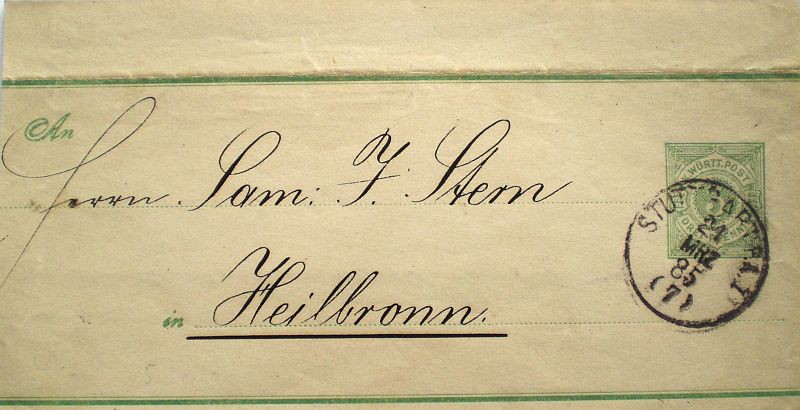 An
Herrn. Sam: J. Stern
in Heilbronn.
K. WÜRTT. POST
DREI
STUTTGART
24
MRZ
85
(7)